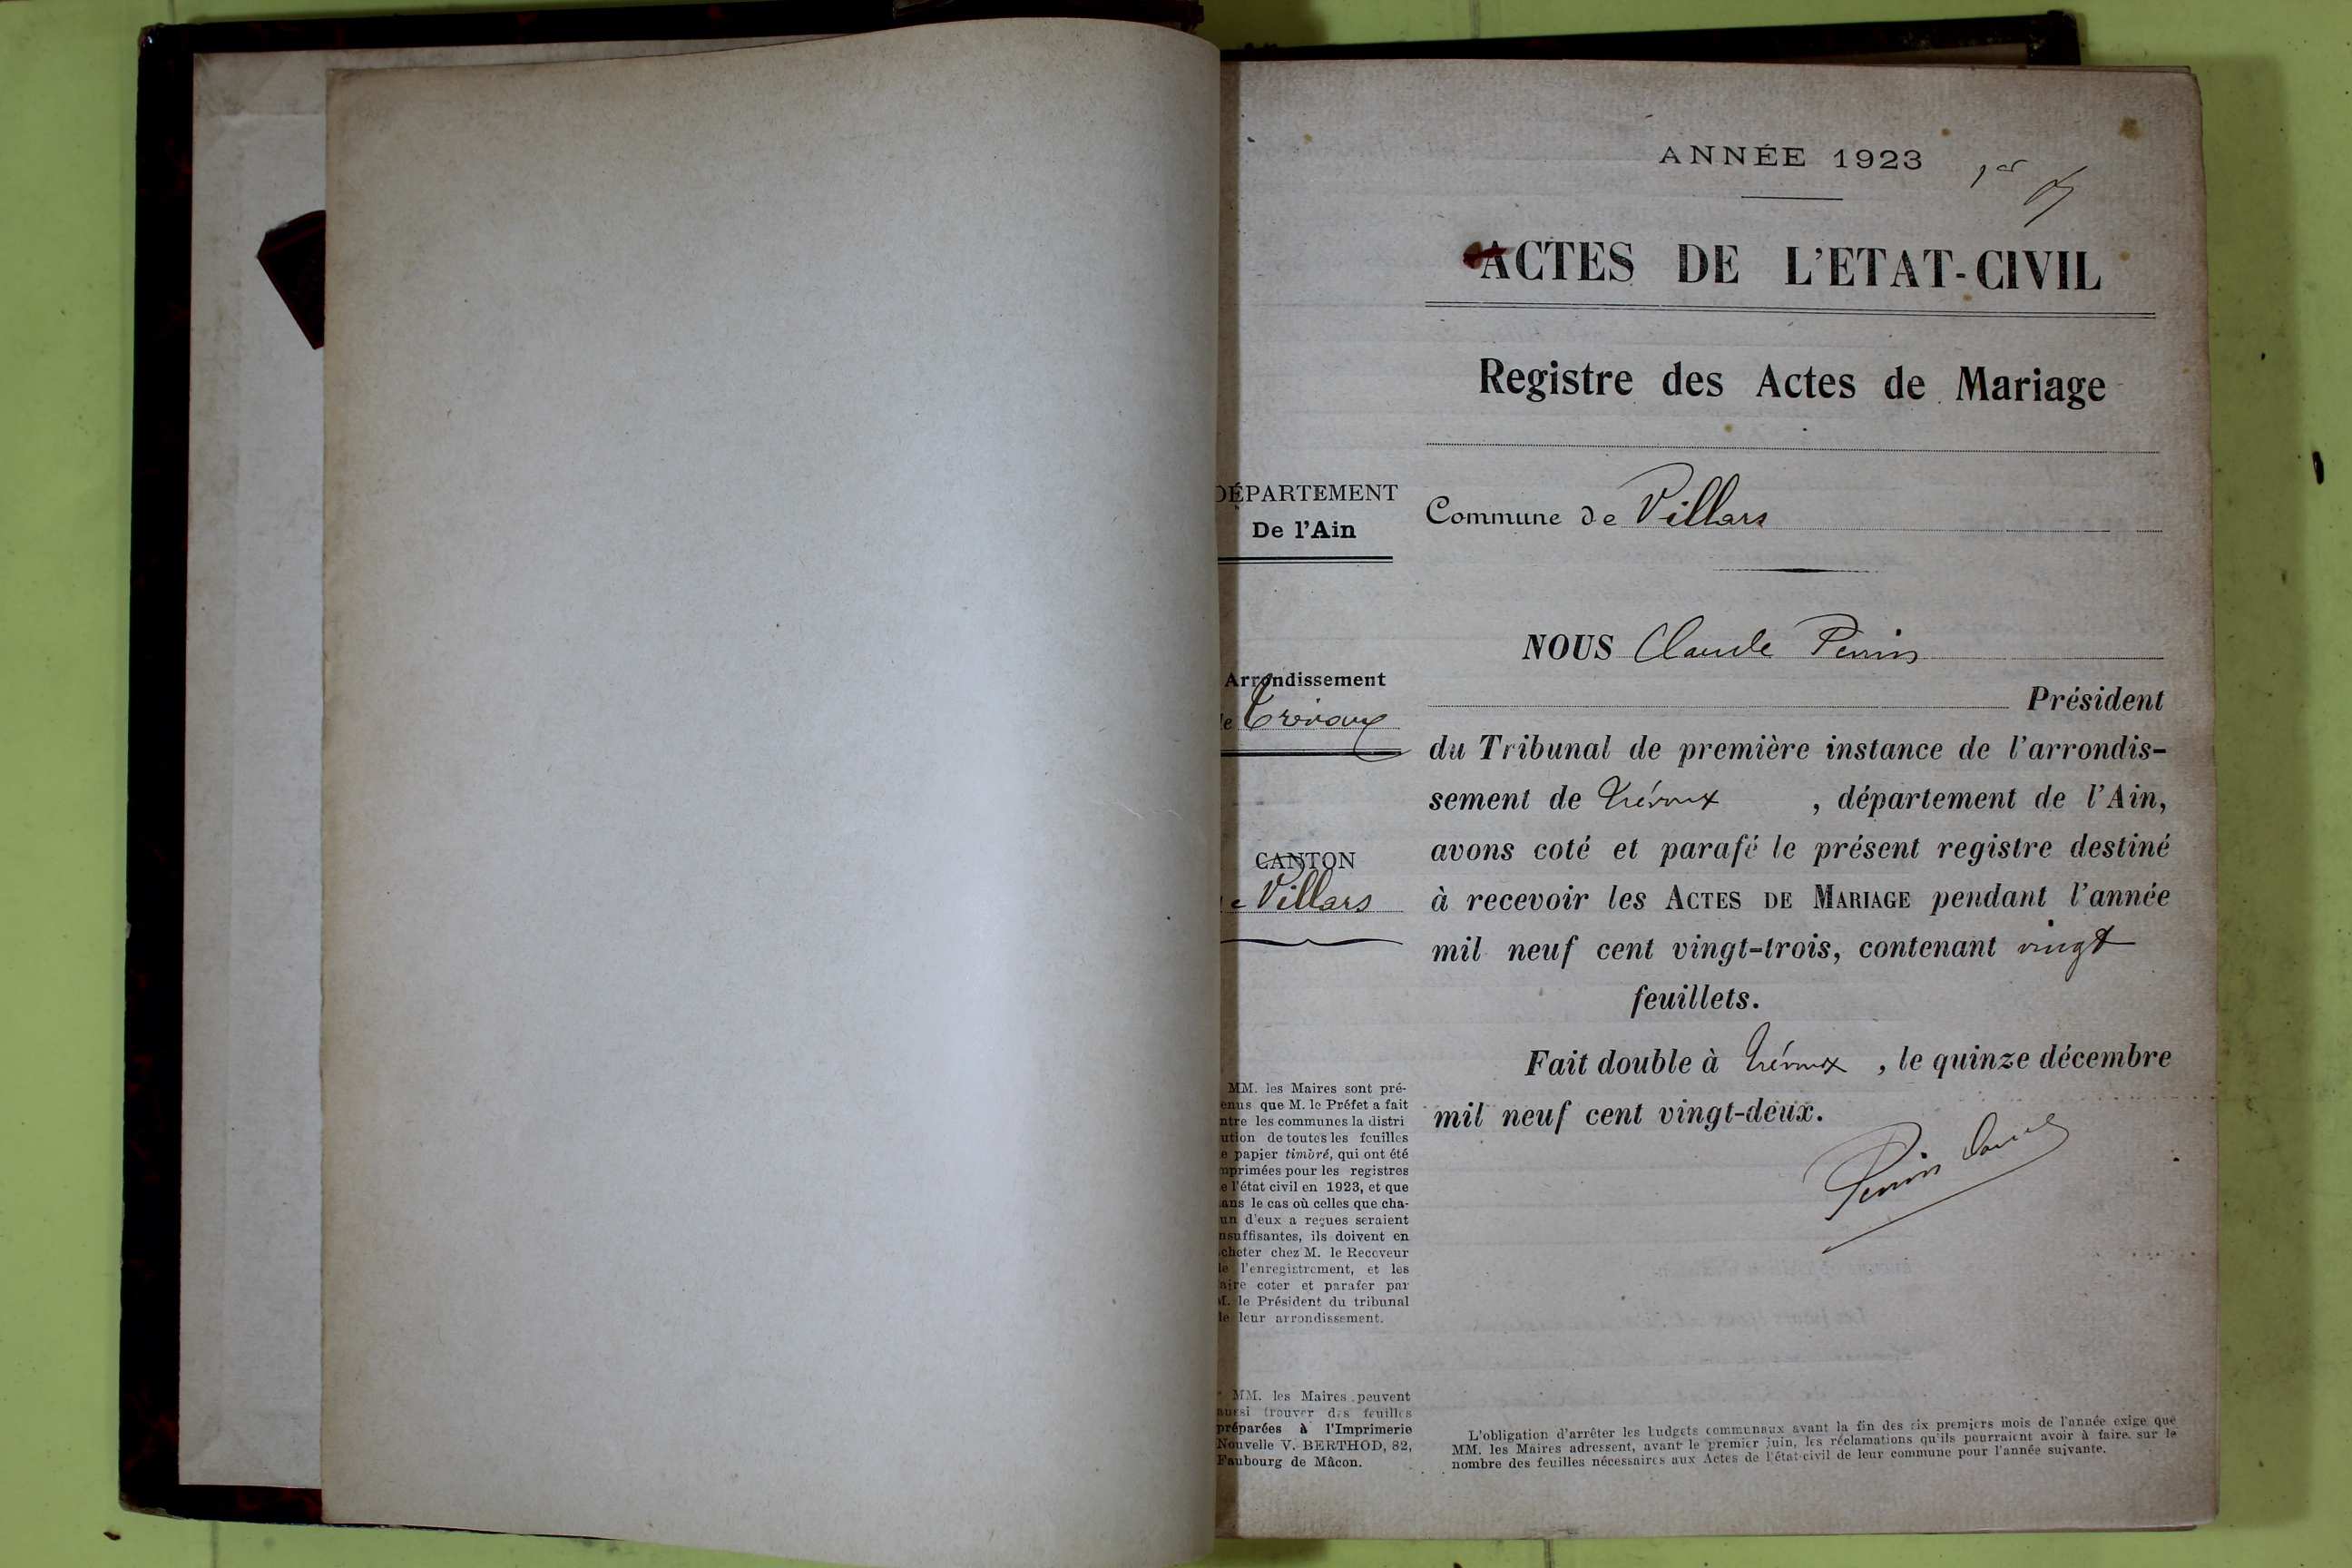 ANNÉE 1923
1er
ACTES DE L'ETAT-CIVIL
Registre des Actes de Mariage
DÉPARTEMENT
De l'Ain
Commune de Villars
Arrondissement
de Trévoux
CANTON
de Villars
NOUS Claude Perrin
Président
du Tribunal de première instance de l'arrondis-
sement de Trévoux , département de l'Ain,
avons coté et parafé le présent registre destiné
à recevoir les ACTES DE MARIAGE pendant l'année
mil neuf cent vingt-trois, contenant vingt
feuillets.
Fait double à Trévoux , le quinze décembre
mil neuf cent vingt-deux.
Perrin
MM. les Maires sont pré-
enus que M. le Préfet a fait
ntre les communes la distri
ution de toutes les feuilles
e papier timbré, qui ont été
mprimées pour les registres
e l'état civil en 1923, et que
ans le cas où celles que cha-
un d'eux a reçues seraient
nsuffisantes, ils doivent en
cheter chez M. le Receveur
de l'enregistrement, et les
aire coter et parafer par
M. le Président du tribunal
de leur arrondissement.
MM. les Maires peuvent
aussi trouver des feuilles
préparées à l'Imprimerie
Nouvelle V. BERTHOD, 82,
Faubourg de Mâcon.
L'obligation d'arrêter les budgets communaux avant la fin des six premiers mois de l'année exige que
MM. les Maires adressent, avant le premier juin, les réclamations qu'ils pourraient avoir à faire sur le
nombre des feuilles nécessaires aux Actes de l'état-civil de leur commune pour l'année suivante.